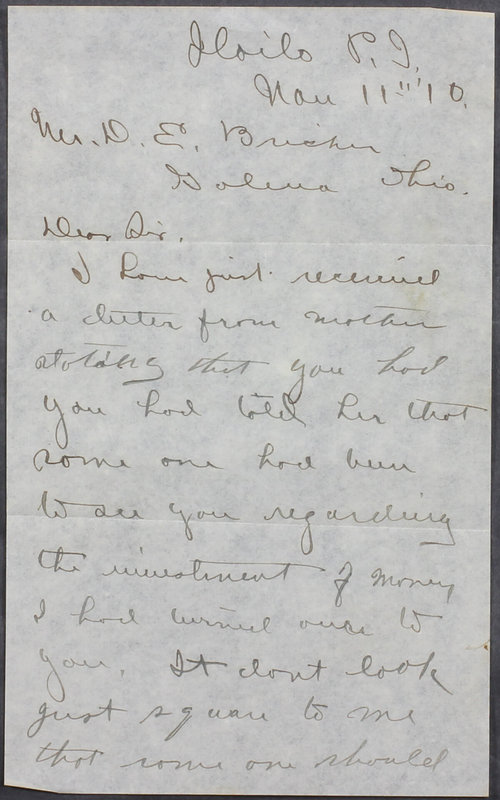 Iloilo P.I.
Nov 11th '10.
Mr. D. E. Bricker
Galena Ohio.
Dear Sir.
I have just received
a letter from mother
stating that you had
you had told her that
some one had been
to see you regarding
the investment of money
I had turned over to
you. It dont look
just square to me
that some one should